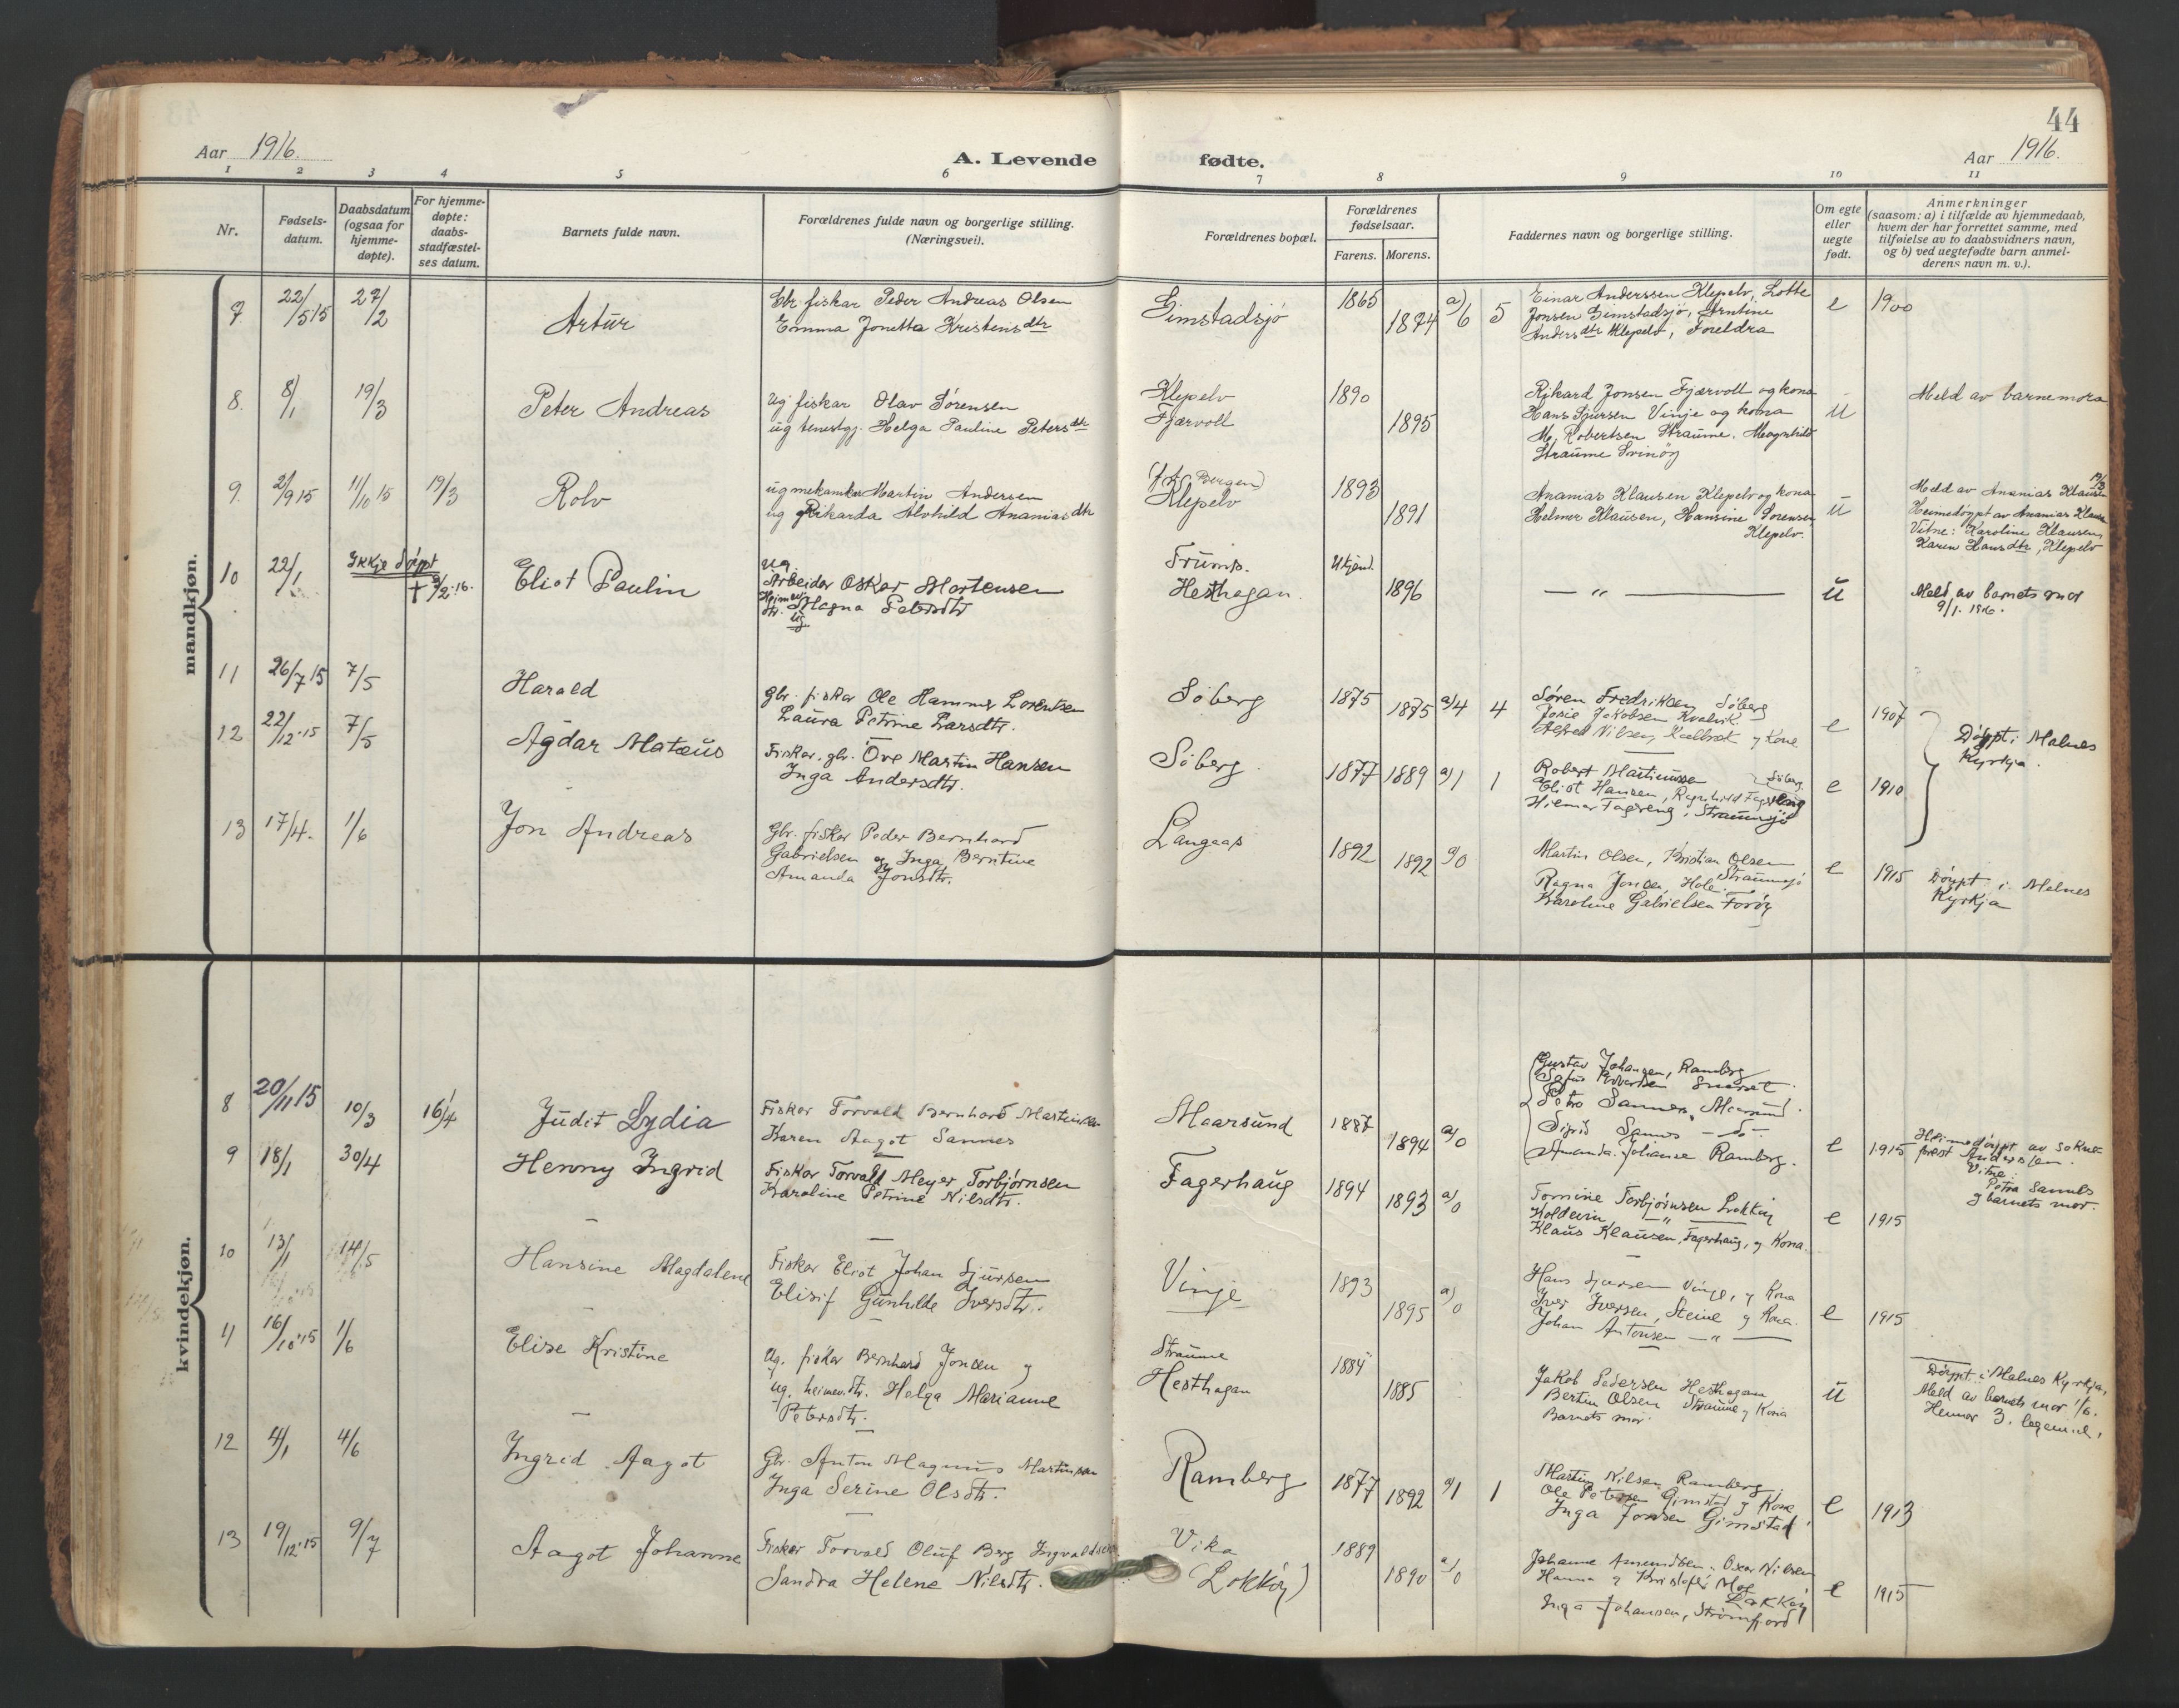 44
Aar 1916.
A. Levende fødte.
Aar 1916.
1 2 3 4 5 6 7 8 9 10 11
Nr.
Fødselsdatum.
Daabsdatum (ogsaa for hjemmedøpte).
For hjemmedøpte: daabsstadfæstelses datum.
Barnets fulde navn.
Forældrenes fulde navn og borgerlige stilling. (Næringsvei).
Forældrenes bopæl.
Forældrenes fødselsaar.
Farens. Morens.
Faddernes navn og borgerlige stilling.
Om egte eller uegte født.
Anmerkninger
(saasom: a) i tilfælde av hjemmedaab,
hvem der har forrettet samme, med
tilføielse av to daabsvidners navn,
og b) ved uegtefødte barn anmelderens navn m. v.).
mandkjøn.
7 22/5 15 27/2 Artur
Gbr. fiskar Peder Andreas Olsen
Emma Jonetta Kristensdtr
Gimstadsjö 1865 1874 a/6 5
Einar Anderssen Klepelv, Lotte
Jonsen Gimstadsjö, Arntine
Andersdtr Klepelv, Foreldra
e 1900
8. 8/1 19/3 Peter Andreas
Ug fiskar Olav Sörensen
ug tenestgj. Helga Pauline Petersdtr
Klepelv
Fjærvoll
1890 1895
Rikard Jonsen Fjærvoll og kona
Hans Sjursen Vinje og kona
M. Robertsen Straume. Magnhild
Straume Svinöy
u Meld av barnemora
9. 2/9 15 11/10 15 19/3 Rolv
ug mekaniker Martin Andersen
ug Rikarda Alvhild Ananiasdtr
(f.t. Bergen)
Klepelv
1893 1891
Ananias Klausen Klepelv og kona
Helmer Klausen, Hansine Sorensen
Klepelv.
u
Meld av Ananias Klausen
Heimedöypt av Ananias Klausen
Vitne: Karoline Klausen,
Karen Hansdtr, Klepelv
10 22/1 Ikkje döypt
Eliot Paulin
ug.
Arbeider Oskar Mortensen
Magna Petersdtr
ug.
Hesthagan. Ukjend. 1896
— " —
u
Meld av barnets mor
9/1. 1916.
11 26/7 15 7/5 Harald
Gbr. fisker Ole Hammer Lorentsen
Laura Petrine Larsdtr.
Söberg 1875 1875 a/4 4
Søren Fredriksen Söberg
Josie Jakobsen Kvalvik
Alfred Nilsen, og Kone
e 1907
Döypt i Malnes
Kyrkja.
12 22/12 15 7/5 Agdar Matæus
Fisker, gbr. Ove Martin Hansen
Inga Andersdtr.
Söberg 1877 1889 a/1 1
Robert Martinusse
Eliot Hansen, Söberg
Hilmar Fagereng, Straumsjö
e 1910
13 17/4. 1/6 Jon Andreas
Gbr. fisker Peder Bernhard
Gabrielsen og Inga Berntine
Amanda Jonsdtr.
Langaas 1892 1892 a/0
Martin Olsen, Kristian Olsen
Straumsjö
Ragna Jonsen, Hole.
Karoline Gabrielsen Foröy
e 1915
Döypt i Malnes
Kyrkja
kvindekjøn.
8 20/11 15 10/3 16/4 Judit Lydia
Fisker Torvald Bernhard Martinsen
Karen Aagot Sannes
Maarsund 1887 1894 a/0
Gustav Johansen, Ramberg
Petra Sannes, Maarsund.
Sigrid Sannes — do —
Amanda Johanse Ramberg.
e 1915
Heimedöypt av sokneprest
Vitne:
Petra Sannes
og barnets mor.
9 18/1 30/4 Henny Ingrid
Fisker Torvald Meyer Torbjørnsen
Karoline Petrine Nilsdtr.
Fagerhaug 1894 1893 a/0
Tomine Torbjörnsen Lokköy
Koldevin — " —
Klaus Klausen, Fagerhaug, og Kona.
e 1915
10 13/1 14/5 Hansine Magdalene
Fisker Eliot Johan Sjursen
Elisif Gunhilde Iversdtr.
Vinje 1893 1895 a/0
Hans Sjursen Vinje, og Kona
Iver Iversen, Steine og Kona.
Johan Antonsen — " —
e 1915
11 16/10 15 1/6 Elise Kristine
Ug. fisker Bernhard Jonsen og
ug. heimev.dtr. Helga Marianne
Petersdtr.
Straume
Hesthagan
1884 1885
Jakob Pedersen Hesthagan
Bertin Olsen Straume og Kona
Barnets mor.
u
Döypt i Malnes Kyrkja,
Meld av barnets mor 1/6.
Hennar 3.
12 4/1 4/6 Ingrid Aagot
Gbr. Anton Magnus Martinsen
Inga Serine Olsdtr.
Ramberg 1877 1892 a/1 1
Martin Nilsen Ramberg,
Ole Petersen Gimstad og Kone
Inga Jonsen Gimstad
e 1913
13 19/12 15 9/7 Aagot Johanne
Fisker Torvald Oluf Berg Ingvaldsen
Sandra Helene Nilsdtr.
Vika
(Lokköy)
1889 1890 a/0
Johanne Amundsen, Oskar Nilsen
Hanna og Kristofer Moe
Lokköy
Inga Johansen, Strömfjord
e 1915